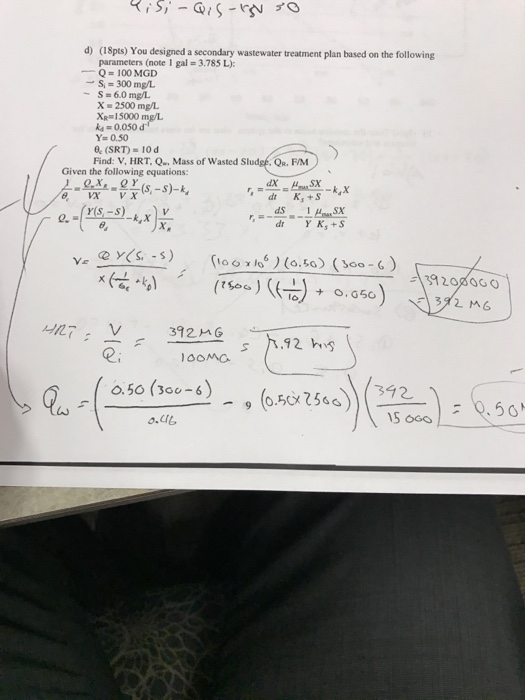 QiSi - QiS - rsV = 0
d) (18pts) You designed a secondary wastewater treatment plan based on the following
parameters (note 1 gal = 3.785 L):
Q = 100 MGD
Si = 300 mg/L
S = 6.0 mg/L
X = 2500 mg/L
XR=15000 mg/L
kd = 0.050 d⁻¹
Y= 0.50
θc (SRT) = 10 d
Find: V, HRT, Qw, Mass of Wasted Sludge, QR, F/M
Given the following equations:
1/θc = QwXR/VX = Q/V Y/X (Si - S) - kd
rx = dX/dt = μmax SX/(Ks + S) - kdX
Qw = (Y(Si - S)/θd - kdX) V/XR
rs = - dS/dt = - 1/Y μmax SX/(Ks + S)
V = QY(Si - S)/X(1/θc + kd) = (100 x 10⁶)(0.50)(300-6)/(2500)((1/10) + 0.050) = 39200000
= 392 MG
HRT = V/Qi = 392 MG/100MG = 3.92 hrs
Qw = (0.50(300-6)/0.16 - (0.50x2500))(392/15000) = 0.50